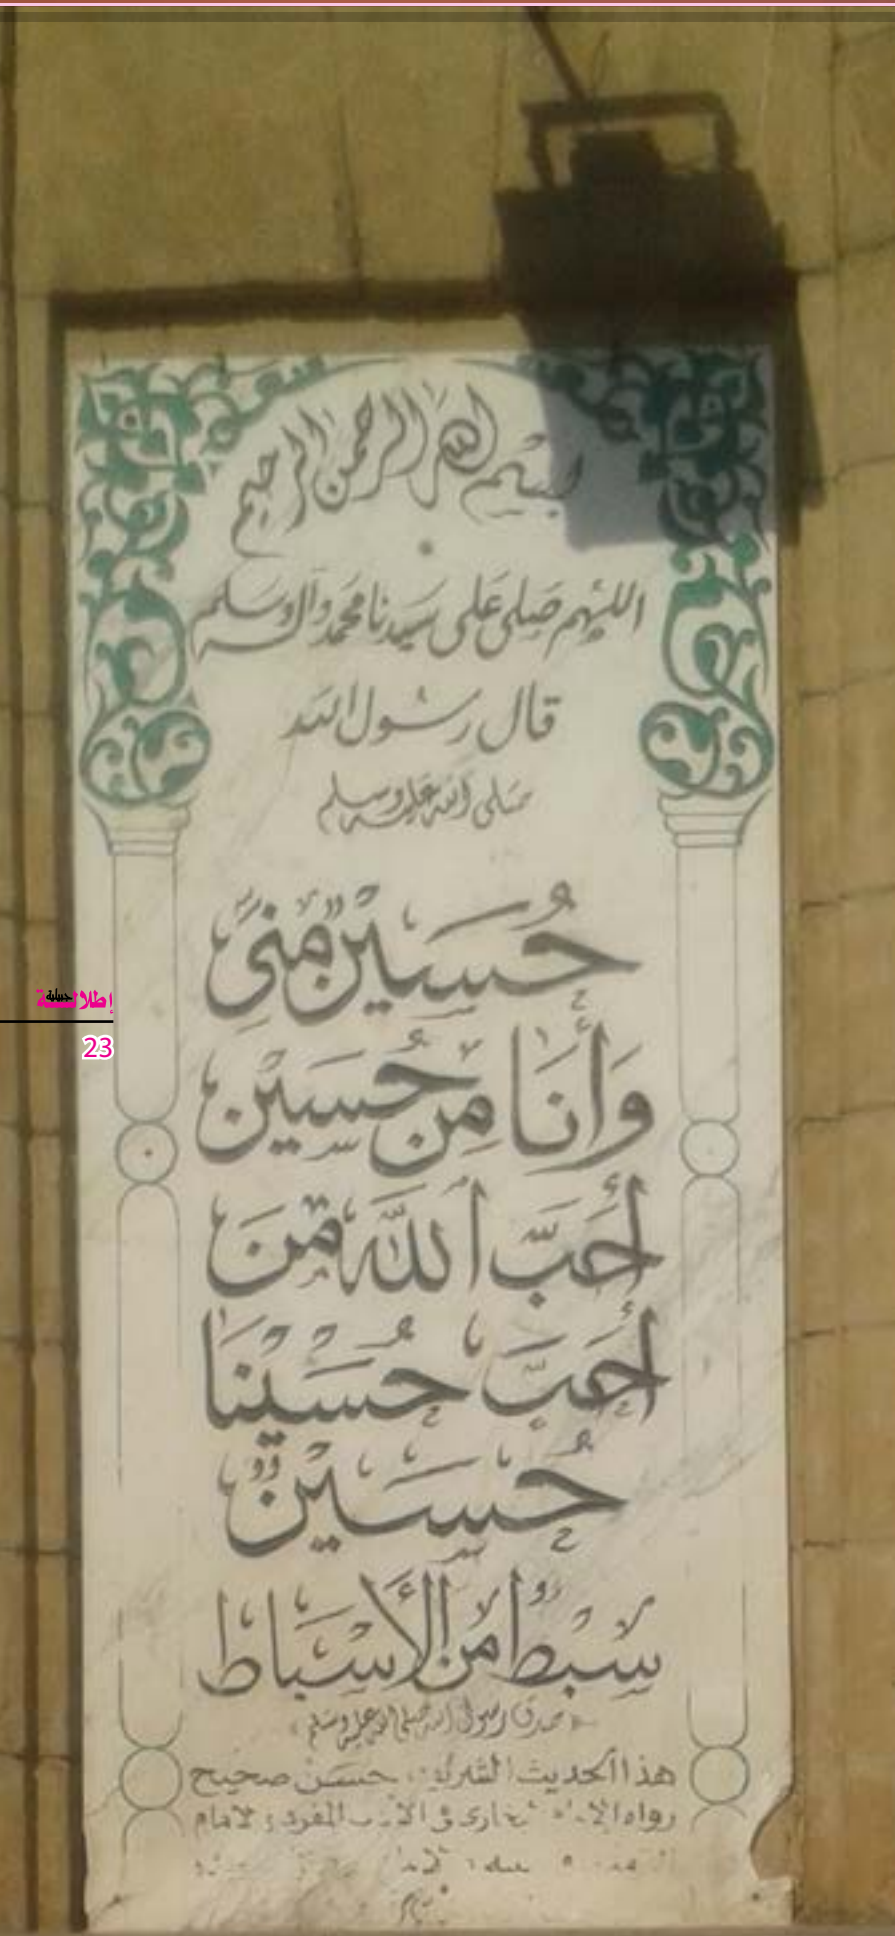 بسم الله الرحمن الرحيم
اللهم صلى على سيدنا محمد وآله وسلم
قال رسول الله
صلى الله عليه وسلم
حُسَيْنٌ مِنِّي
وَأَنَا مِن حُسَيْن
أَحَبَّ اللَّهُ مَنْ
أَحَبَّ حُسَيْنًا
حُسَيْنٌ
سِبْطٌ مِنَ الأَسْبَاط
صدق رسول الله صلى الله عليه وسلم
هذا الحديث الشريف حسن صحيح
رواه البخارى في الأدب المفرد
23